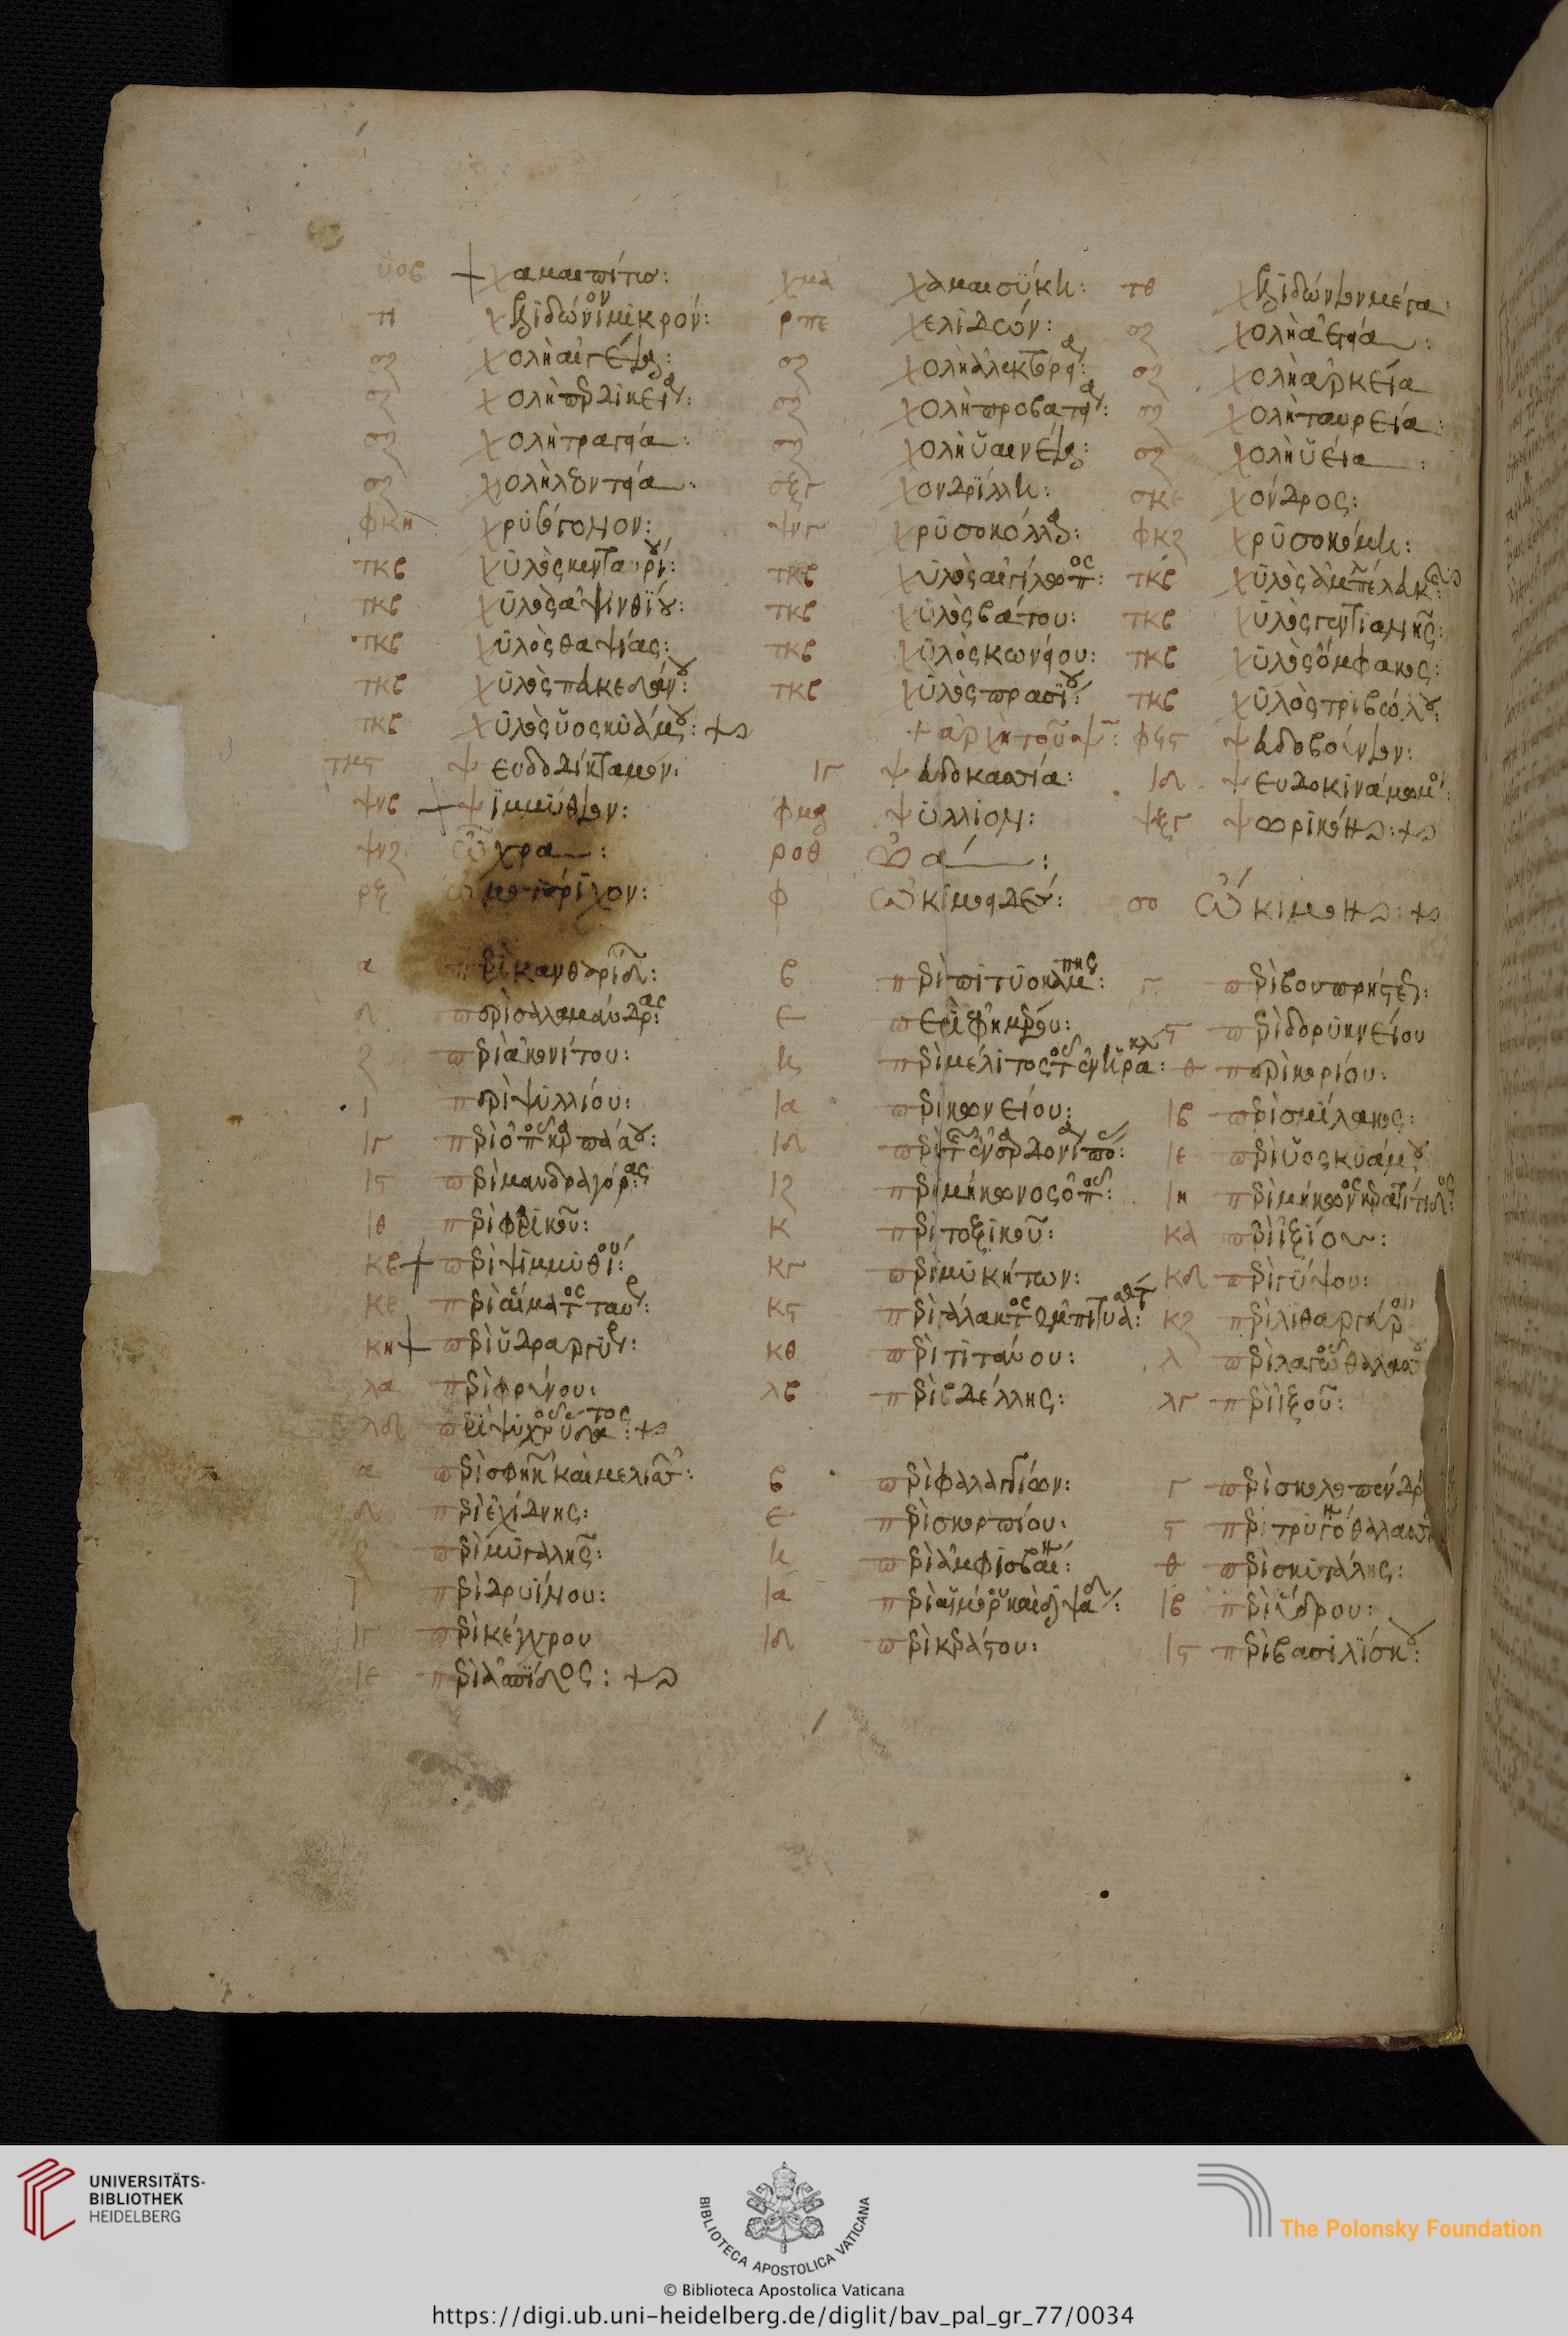 υοβ + χαμαιπίτυσ: χμα χαμαισύκη: τθ χελιδώνιον μέγα:
τι χελιδώνιον μικρόν: ρπε χελιδών: σζ χολὴ ἀετεία:
σζ χολὴ αἰγεία: σζ χολὴ ἀλεκτορεία: σζ χολὴ ἀρκεία
σζ χολὴ περδικεία: σζ χολὴ προβατεία: σζ χολὴ ταυρεία:
σζ χολὴ τραγεία: σζ χολὴ ὑαινεία: σζ χολὴ ὑεία:
σζ χολὴ λεοντεία: σξγ χονδρίλλη: σκε χόνδρος:
φκη χρυσόγονον: ψνγ χρυσοκόλλα: φκζ χρυσοκόμη:
τκβ χυλὸς κενταυρίου: τκβ χυλὸς αἰγίλωπος: τκβ χυλὸς
τκβ χυλὸς ἀψινθίου: τκβ χυλὸς βάτου: τκβ χυλὸς γεντιανῆς:
τκβ χυλὸς θαψίας: τκβ χυλὸς κωνείου: τκβ χυλὸς ὄμφακος:
τκβ χυλὸς τκβ χυλὸς πρασίου: τκβ χυλὸς τριβόλου:
τκβ χυλὸς ὑοσκυάμου: + ἀρχὴ τοῦ ψ: ψευδοβούνιον:
ψευδοδίκταμον: ιγ ψευδοκασία: ιδ ψευδοκινάμωμον:
ψνβ + ψιμμύθιον: ψύλλιον: ψωρικόν:
ψνζ ὤχρα: ροθ ὠά:
ρξ ὠμοτάριχον: φ ὠκιμοειδές: σο ὤκιμον:
α περὶ κανθαρίδων: β περὶ πιτυοκάμπης: γ περὶ βουπρήστεως:
δ περὶ σαλαμάνδρας: ε περὶ ἐφημέρου: ς περὶ δορυκνείου
ζ περὶ ἀκονίτου: η περὶ μέλιτος τοῦ ἐν Ἡρακλ: θ περὶ κορίου:
ι περὶ ψυλλίου: ια περὶ κωνείου: ιβ περὶ σμίλακος:
ιγ περὶ ὀποῦ καρπάσου: ιδ περὶ τῆς ἐν σαρδονίᾳ πόας: ιε περὶ ὑοσκυάμου
ις περὶ μανδραγόρας: ιζ περὶ μήκωνος ὀποῦ: ιη περὶ μήκωνος κερατίτιδος:
ιθ περὶ φαρικοῦ: κ περὶ τοξικοῦ: κα περὶ ἰξίου:
κβ + περὶ ψιμμυθίου: κγ περὶ μυκήτων: κδ περὶ γύψου:
κε περὶ αἵματος ταύρου: κς περὶ γάλακτος ἐμπιτυασθέντος: κζ περὶ λιθαργύρου
κη + περὶ ὑδραργύρου: κθ περὶ τιτάνου: λ περὶ λαγωοῦ θαλασσίου
λα περὶ φρύνου: λβ περὶ βδέλλης: λγ περὶ ἰξοῦ:
λδ περὶ ψυχροῦ ὕδατος:
α περὶ σφηκῶν καὶ μελισσῶν: β περὶ φαλαγγίων: γ περὶ σκολοπένδρ
δ περὶ ἐχίδνης: ε περὶ σκορπίου: ς περὶ τρυγόνος θαλασσ
ζ περὶ μυγαλῆς: η περὶ ἀμφισβαίνης: θ περὶ σκυτάλης:
ι περὶ δρυΐνου: ια περὶ αἱμόρρου καὶ διψάδος: ιβ περὶ ὕδρου:
ιγ περὶ κέγχρου ιδ περὶ κεράστου: ις περὶ βασιλίσκου:
ιε περὶ ἀσπίδος:
UNIVERSITÄTS-
BIBLIOTHEK
HEIDELBERG
BIBLIOTECA APOSTOLICA VATICANA
The Polonsky Foundation
© Biblioteca Apostolica Vaticana
https://digi.ub.uni-heidelberg.de/diglit/bav_pal_gr_77/0034